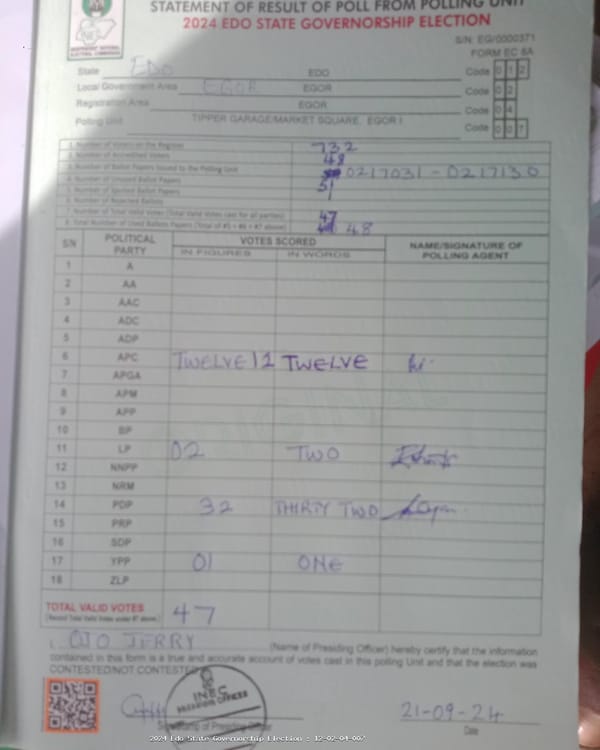 STATEMENT OF RESULT OF POLL FROM POLLING UNIT
2024 EDO STATE GOVERNORSHIP ELECTION
INEC
S/N: EG/0000371
FORM EC 8A
State EDO EDO Code 0 1 2
Local Government Area EGOR EGOR Code 0 2
Registration Area EGOR Code 0 4
Polling Unit TIPPER GARAGE/MARKET SQUARE, EGOR I Code 0 0 7
1. Number of Voters on the Register 732
2. Number of Accredited Voters 48
3. Number of Ballot Papers Issued to the Polling Unit 0217031 - 0217130
4. Number of Unused Ballot Papers 51
5. Number of Spoiled Ballot Papers 1
6. Number of Rejected Ballots
7. Number of Total Valid Votes (Total Valid Votes cast for all parties) 47
8. Total Number of Used Ballot Papers (Total of #5 + #6 + #7 above) 48
SN POLITICAL PARTY VOTES SCORED NAME/SIGNATURE OF POLLING AGENT
IN FIGURES IN WORDS
1 A
2 AA
3 AAC
4 ADC
5 ADP
6 APC TWELVE 12 TWELVE
7 APGA
8 APM
9 APP
10 BP
11 LP 02 TWO
12 NNPP
13 NRM
14 PDP 32 THIRTY TWO
15 PRP
16 SDP
17 YPP 01 ONE
18 ZLP
TOTAL VALID VOTES 47
(Record Total Valid Votes under #7 above)
I, OJO JERRY (Name of Presiding Officer) hereby certify that the information
contained in this form is a true and accurate account of votes cast in this polling Unit and that the election was
CONTESTED/NOT CONTESTED
INEC
PRESIDING OFFICER
Signature of Presiding Officer
21-09-24
Date
2024 Edo State Governorship Election : 12-02-04-007